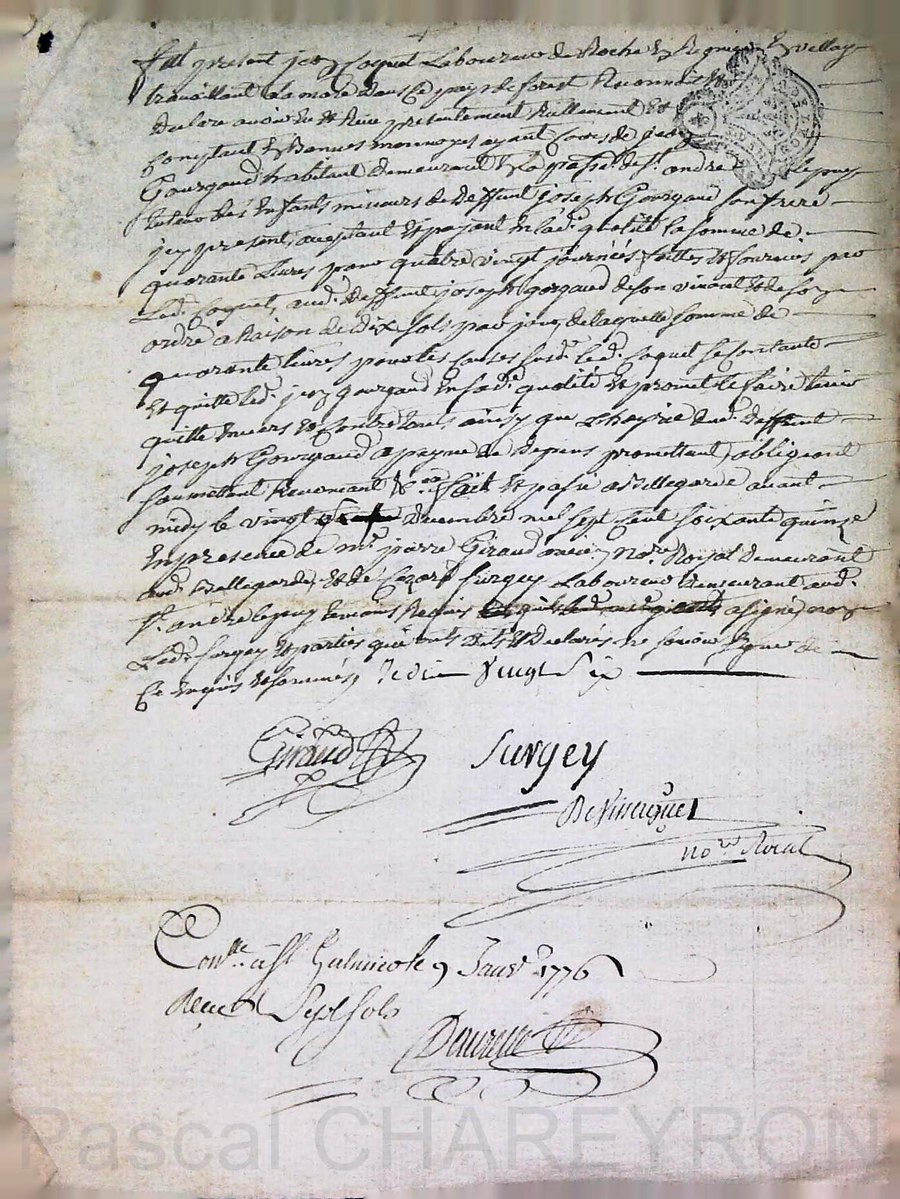 fut present jean Coquet Laboureur de Roche En Regnier En vellay
travaillant La mode dans Ce pays de forest Reconnoit Et
declare avoir Eu Et Receu presentement Reallement Et
Comptant En Bonnes monnoyes ayant Cours de jean
Gourgaud habitant demeurant En La parse. de St. andre Lepuy
tuteur des Enfants mineurs de deffunt joseph Gourgaud son frere
jcy present, acceptant Et payant En lad. qualité la somme de
quarante Livres pour quatre vingt journées faittes Et fournies par
Led. Coquet, aud. deffunt joseph gorgaud de son vivant Et de Son
ordre a Raison de dix sols par jour, de laquelle somme de
quarante livres pour les Causes susd. led. Coquet se Contante
Et quitte led. jean gourgaud En sad. qualité Et promet le faire tenir
quitte Envers Et Contre tous ainsy que L'hoyrie dud. deffunt
joseph Gourgaud a peyne de depens promettant, obligeant
Soumettant Renonçant &c. fait Et passé a Bellegarde avant
midy le vingt decembre mil sept Cent soixante quinze
En presence de me. pierre Giraud ancien nore. Royal demeurant
aud. Bellegarde, Et de Cezard Surgey Laboureur demeurant aud.
St. andre lepuy temoins Requis a signé, non
Led. Surgey Et parties qui ont dit Et declarés ne savoir signer de
Ce Enquis Et sommés, vingt Six
Giraud
Surgey
nore Roial
Conlle. a St. Galmier le 9 Janvr. 1776
Receu Sept Sols
Pascal CHAREYRON